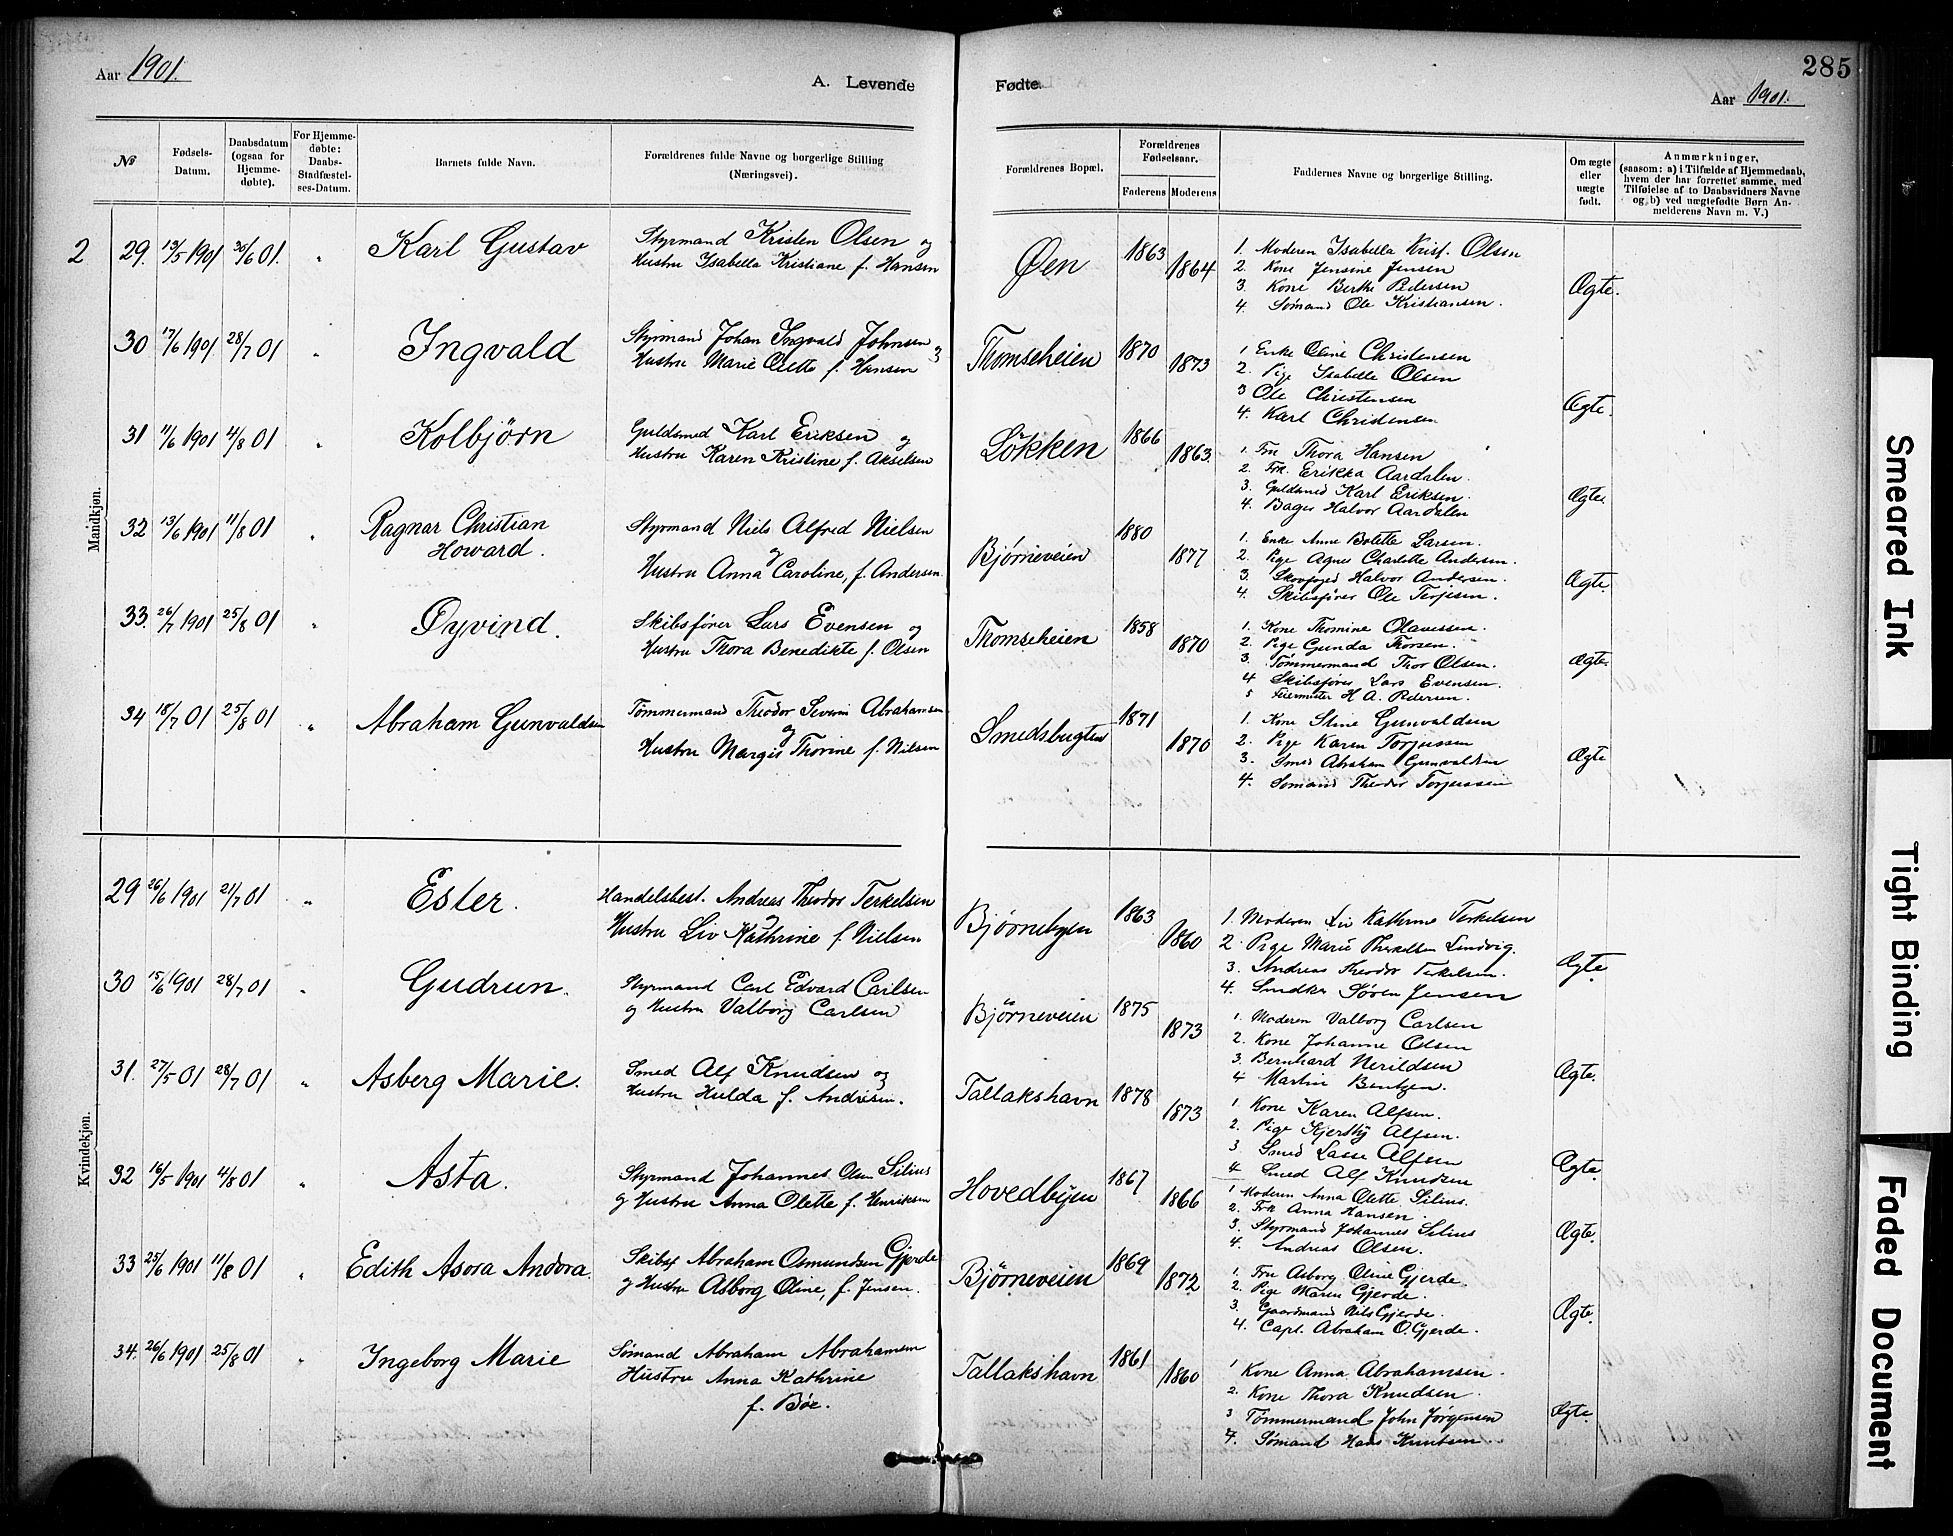 Aar 1901.
A. Levende
Fødte.
285
Aar 1901.
№
Fødsels-Datum.
Daabsdatum (ogsaa for Hjemme-døbte).
For Hjemme-døbte: Daabs-Stadfæstel-ses-Datum.
Barnets fulde Navn.
Forældrenes fulde Navne og borgerlige Stilling (Næringsvei).
Forældrenes Bopæl.
Forældrenes Fødselsaar.
Faderens Moderens
Faddernes Navne og borgerlige Stilling.
Om ægte eller uægte født.
Anmærkninger,
(saasom: a) i Tilfælde af Hjemmedaab,
hvem der har forrettet samme, med
Tilføielse af to Daabsvidners Navne
og b) ved uægtefødte Børn An-
melderens Navn m. V.)
Mandkjøn.
2 29. 13/5 1901 30/6 01. " Karl Gustav
Styrmand Kristen Olsen og
Hustru Isabella Kristiane f. Hansen
Øen 1863 1864
1. Moderen Isabella Krist. Olsen
2. Kone Jensine Jensen
3. Kone Berthe Pedersen
4. Sømand Ole Kristiansen.
Ægte.
30 17/6 1901 28/7 01 " Ingvald
Styrmand Johan Ingvald Johnsen og
Hustru Marie Olette f. Hansen
Thomseheien 1870 1873
1. Enke Oline Christensen
2. Pige Isabelle Olsen
3 Ole Christensen
4. Karl Christensen
Ægte.
31 11/6 1901 4/8 01 " Kolbjørn
Guldsmed Karl Eriksen og
Hustru Karen Kristine f. Akselsen
Løkken 1866 1863.
1. Fru Thora Hansen
2. Frk. Erikka Aardalen.
3. Guldsmed Karl Eriksen.
4. Bager Halvor Aardalen
Ægte.
32 13/6 1901 11/8 01 " Ragnar Christian
Howard.
Styrmand Niels Alfred Nielsen
og
Hustru Anna Caroline, f. Andersen.
Bjørneveien 1880 1877
1. Enke Anne Bolette Larsen.
2. Pige Agnes Charlotte Andersen.
3. Skovfoged Halvor Andersen.
4. Skibsfører Ole Terjesen.
Ægte.
33. 26/7 1901 25/8 01 " Øyvind.
Skibsfører Lars Evensen og
Hustru Thora Benedikte f. Olsen
Thomseheien 1858 1870
1. Kone Thomine Olavessen.
2. Pige Gunda Thorsen.
3. Tømmermand Thor Olsen.
4. Skibsfører Lars Evensen.
5 H. A. Pedersen.
Ægte.
34 18/7 01 25/8 01 " Abraham Gunvaldsen
Tømmermand Theodor Severin Abrahamsen
og
Hustru Margit Thorine f. Nilsen
Smedsbugten 1871 1870
1. Kone Stine Gunvaldsen
2. Pige Karen Torjussen
3. Smed Abraham Gunvaldsen
4. Sømand Theodor Torjussen
Ægte
Kvindekjøn.
29 26/6 1901 21/7 01 " Ester.
Handelsbest. Andreas Theodor Terkelsen
og
Hustru Liv Kathrine f. Nielsen
Bjørnebyen 1863 1860
1. Moderen Liv Kathrine Terkelsen
2. Pige Marie Therkelsen Lindvig.
3. Andreas Theodor Terkelsen.
4. Snedker Søren Jensen
Ægte.
30 15/6 1901 28/7 01 " Gudrun.
Styrmand Carl Edvard Carlsen
og Hustru Valborg Carlsen
Bjørneveien 1875 1873
1. Moderen Valborg Carlsen
2. Kone Johanne Olsen
3. Bernhard Nerildsen
4 Martin Bentzen.
Ægte.
31. 27/5 01 28/7 01 " Asberg Marie.
Smed Alf Knudsen og
Hustru Hulda f. Andresen.
Tallakshavn 1878 1873
1. Kone Karen Alfsen.
2. Pige Kjersty Alfsen.
3 Smed Lasse Alfsen
4 Smed Alf Knudsen
Ægte.
32 16/5 1901 4/8 01 " Asta.
Styrmand Johannes Olsen Silius
og Hustru Anna Olette f. Henriksen
Hovedbyen 1867 1866
1 Moderen Anna Olette Silius.
2. Frk Anna Hansen.
3. Styrmand Johannes Silius
4. Andreas Olsen.
Ægte.
33 25/6 1901 11/8 01 " Edith Asora Andora.
Skibsf Abraham Osmundsen Gjerde
og Hustru Asborg Oline, f. Jensen.
Bjørneveien 1869 1872
1. Fru Asborg Oline Gjerde.
2. Pige Maren Gjerde.
3. Gaardmand Nils Gjerde.
4. Capt. Abraham O. Gjerde.
Ægte.
34. 26/6 1901 25/8 01 " Ingeborg Marie
Sømand Abraham Abrahamsen
Hustru Anna Kathrine
f. Bøe.
Tallakshavn 1861 1860
1 Kone Anna Abrahamsen.
2. Kone Thora Knudsen.
3 Tømmermand John Jørgensen
4. Sømand Hans Knutsen.
Ægte.
Smeared Ink
Tight Binding
Faded Document